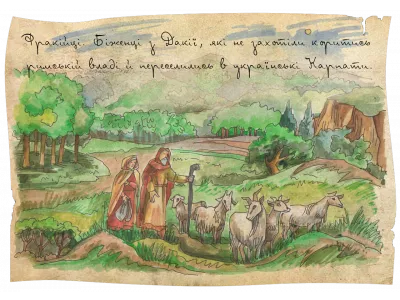 Фракійці. Біженці з Дакії, які не захотіли коритись
римській владі й переселились в українські Карпати.